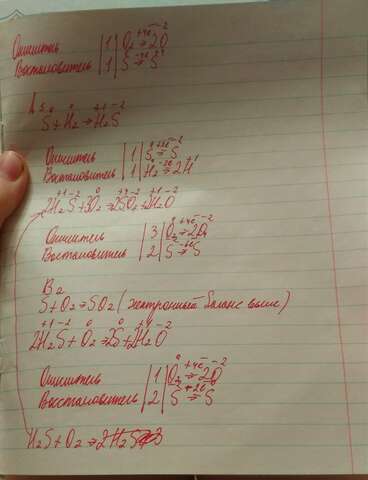 Окислитель |1| O₂⁰ +4ē → 2O⁻²
Восстановитель |1| S⁰ -4ē → S⁺⁴
S⁰ + H₂⁰ → H₂⁺¹S⁻²
Окислитель |1| S⁰ +2ē → S⁻²
Восстановитель |1| H₂⁰ -2ē → 2H⁺¹
2H₂⁺¹S⁻² + 3O₂⁰ → 2S⁺⁴O₂⁻² + 2H₂⁺¹O⁻²
Окислитель |3| O₂⁰ +4ē → 2O⁻²
Восстановитель |2| S⁻² -6ē → S
В 2
S + O₂ → SO₂ (электронный баланс выше)
2H₂⁺¹S⁻² + O₂⁰ → 2S⁰ + 2H₂O
Окислитель |1| O₂⁰ +4ē → 2O⁻²
Восстановитель |2| S → S
H₂S + O₂ → 2H₂S